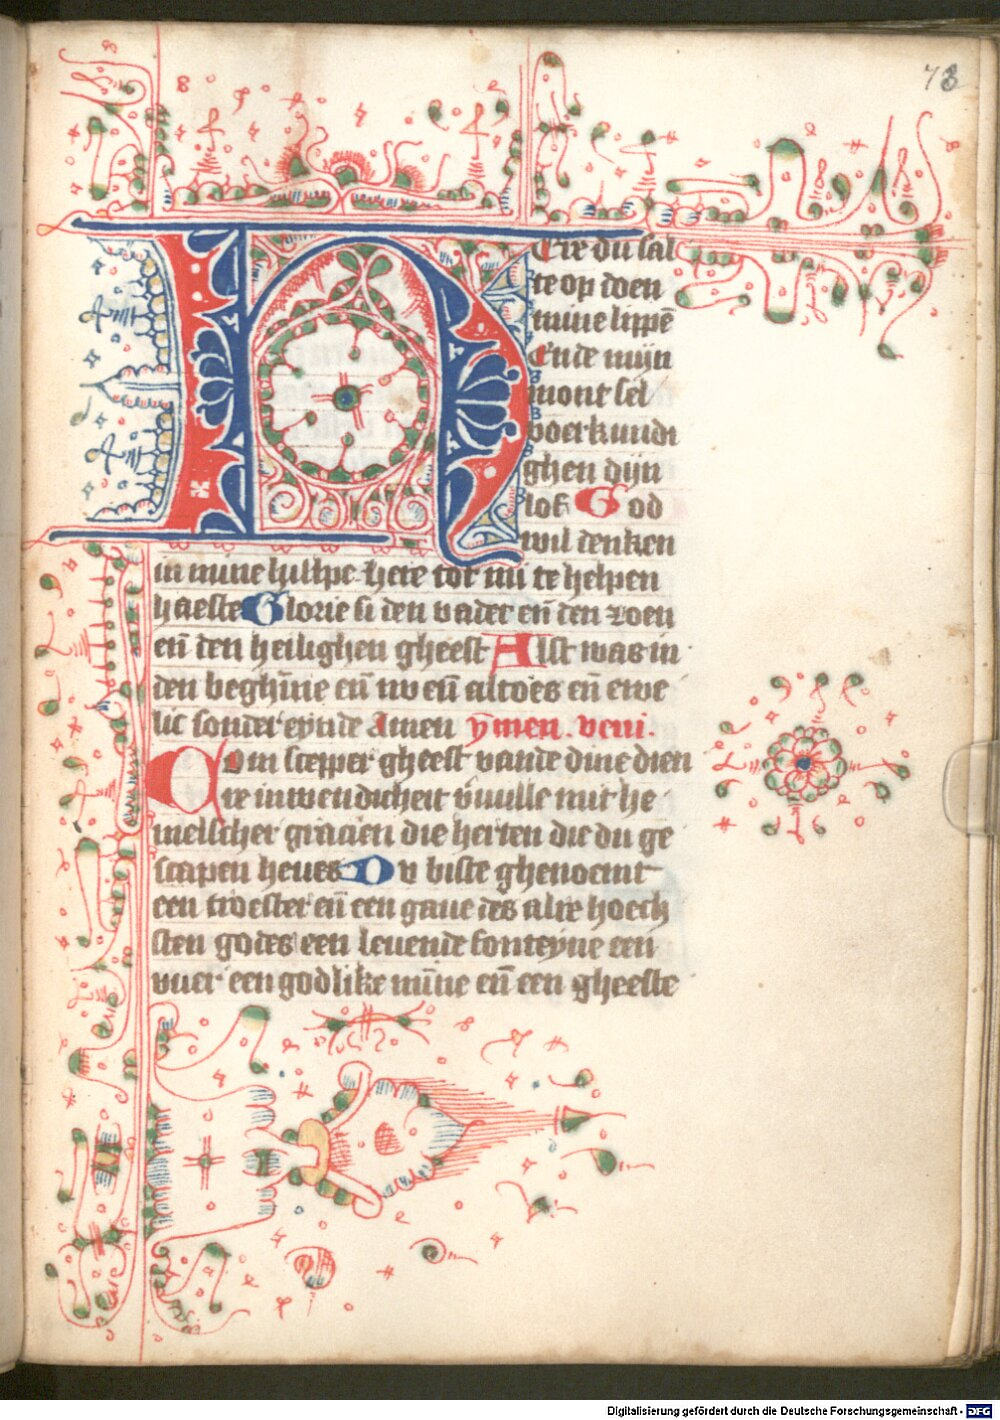 73
HEre du sal
te op doen
mine lippē
Ende mijn
mont sel
voerkundi
ghen dijn
lof God
wil denken
in mine hulpe here tot mi te helpen
haeste Glorie si den vader eñ den zoen
eñ den heilighen gheest Alst was in
den beghīne eñ nv eñ altoes eñ ewe
lic sonder eynde Amen ymen. veni.
Com scepper gheest vande dine dien
re inwendicheit v̄uulle mit he
melscher gracien die herten die du ge
scapen heues Du biste ghenoemt
een troester eñ een gaue des alre hoech
sten godes een leuende fonteyne een
vuer een godlike mīne eñ een gheeste
Digitalisierung gefördert durch die Deutsche Forschungsgemeinschaft - DFG